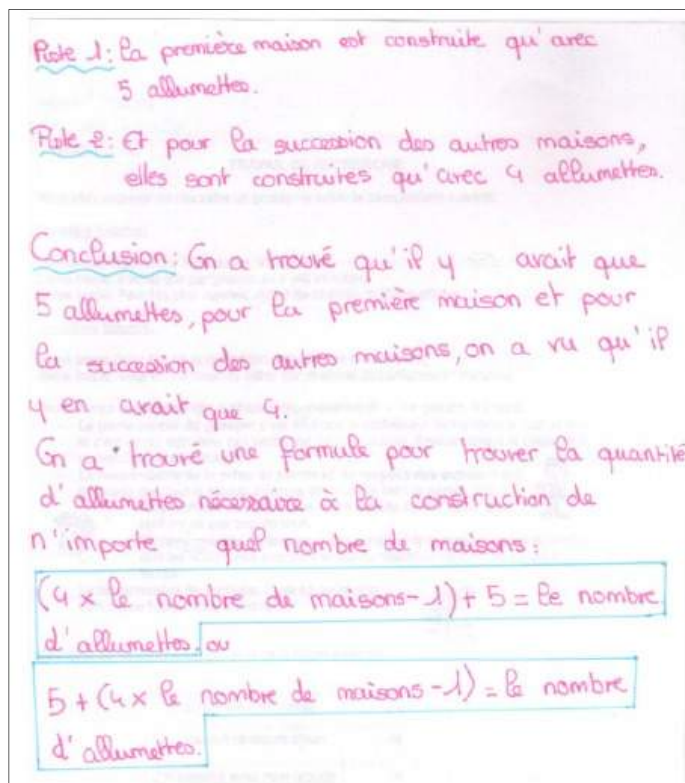 Piste 1: la première maison est construite qu'avec
5 allumettes.
Piste 2: Et pour la succession des autres maisons,
elles sont construites qu'avec 4 allumettes.
Conclusion: On a trouvé qu'il y avait que
5 allumettes, pour la première maison et pour
la succession des autres maisons, on a vu qu'il
y en avait que 4.
On a trouvé une formule pour trouver la quantité
d'allumettes nécessaire à la construction de
n'importe quel nombre de maisons:
(4 x le nombre de maisons-1) + 5 = le nombre
d'allumettes. ou
5 + (4 x le nombre de maisons -1) = le nombre
d'allumettes.